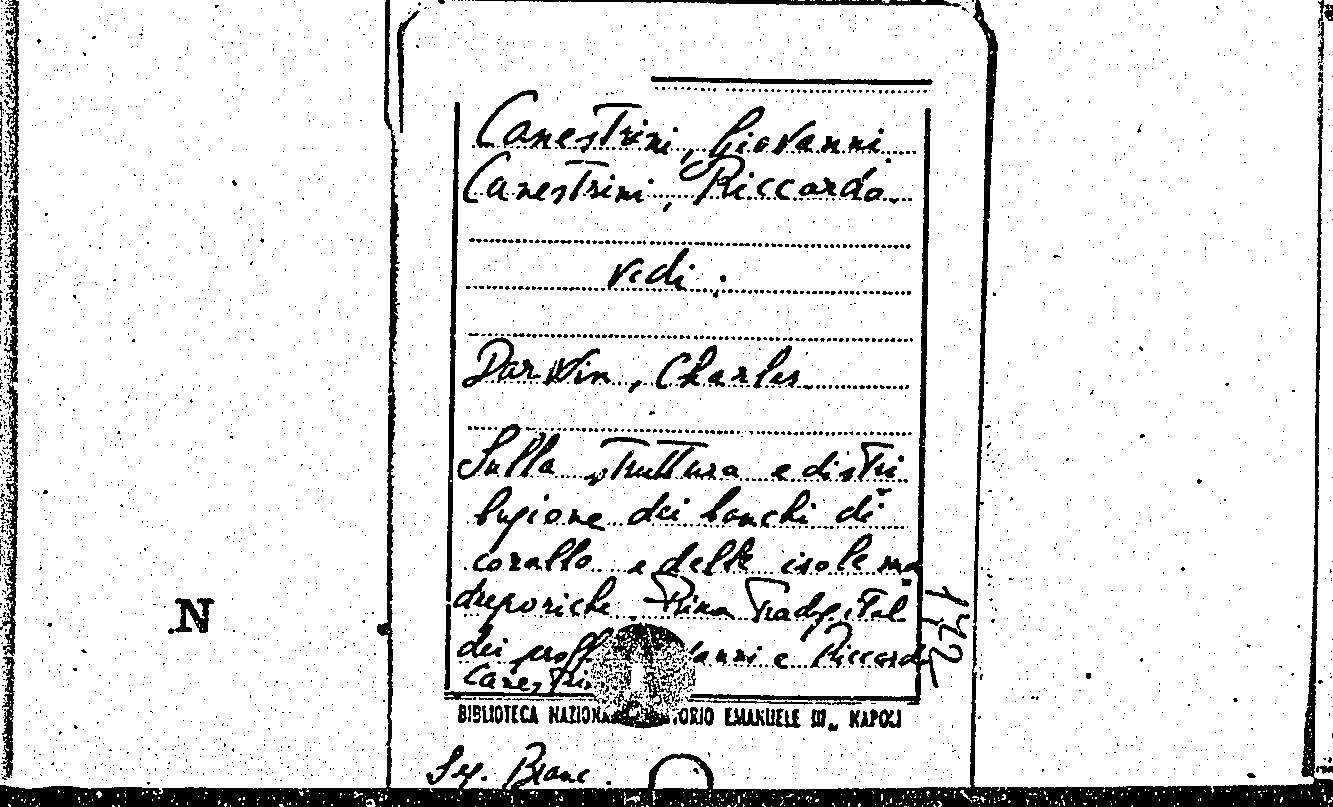 Canestrini, Giovanni
Canestrini, Riccardo.
vedi:
Darwin, Charles
Sulla struttura e distri
buzione dei banchi di
corallo e delle isole ma
dreporiche Prima Trad. ital
dei proff. e Riccardo
Canestrin
BIBLIOTECA NAZIONA ORIO EMANUELE III„ NAPOLI
N
Branc.